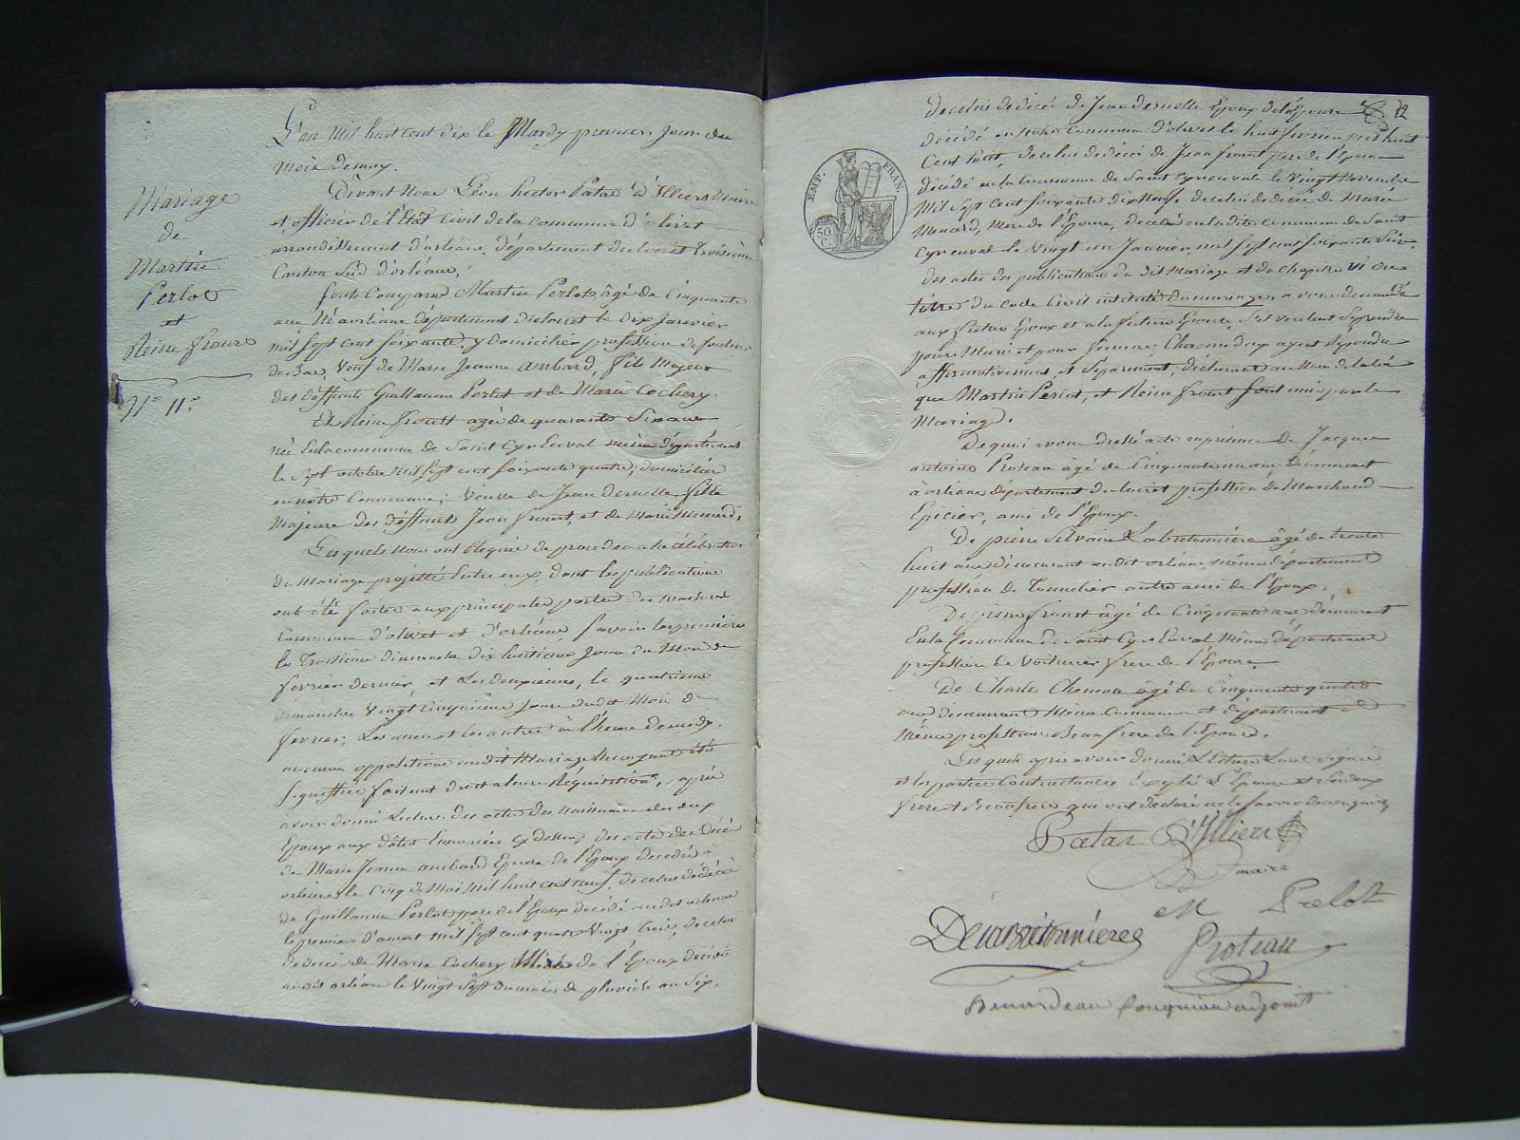 L'an mil huit cent dix le Mardy premier Jour du
mois de may.
Mariage
de
Martin
Perlot
et
Reine frouet
N.° 11.°
Devant Nous Léon hector Patas d'Illiers Maire
et officier de l'Etat Civil de la commune d'olivet
arrondissement d'orléans, département du loiret troisième
Canton Sud d'orléans,
sont Comparus Martin Perlot, âgé de Cinquante
ans Né a orléans département du loiret le dix janvier
mil sept cent soixante, y domicilié profession de
de Bas, Veuf de Marie Jeanne ambard, fils Majeur
des déffunts Guillaume Perlot et de Marie Cochery.
Et Reine frouet agée de quarante Six ans
née en la commune de Saint Cyr en val même département
le sept octobre mil sept cent soixante quatre, domiciliée
en notre Commune; veuve de Jean desnelle fille
Majeure des déffunts Jean frouet, et de Marie Menard,
Lesquels Nous ont Requis de proceder a la célébration
du Mariage projetté Entre eux, dont les publications
ont été faites aux principales portes des maisons
Commune d'olivet et d'orléans savoir les premières
le Troisième dimanche dix huitième Jour du Mois de
fevrier dernier et Les deuxièmes, le quatrième
dimanche Vingt cinquième Jour dudit Mois de
fevrier; Les unes et les autres à l'heure de midy.
aucune opposition audit Mariage Ne nous ayant été
Signiffiée faisant droit a leurs Réquisitions, après
avoir donné Lecture des actes des Naissances des deux
Epoux aux dattes Enoncées cy dessus, des actes de Décès
de Marie Jeanne ambard Epouse de l'Epoux décédée à
orléans le Cinq de Mai Mil huit cent neuf, de celui de décès
de Guillaume Perlot père de l'Epoux décédé audit orléans
le premier d'aoust mil sept cent quatre Vingt treize, de celui
de décès de Marie Cochery Mère de l'Epoux décédée
audit orléans le Vingt Sept du mois de pluviôse an Six,
de celui de décès de Jean desnelle Epoux de l'Epouse
décédé en notre Commune d'olivet le huit
Cent huit, de celui de décès de Jean frouet père de l'Epouse
décédé en la Commune de Saint Cyr en val le Vingt Novembre
Mil Sept Cent Soixante dix Neuf, de celui de décès de Marie
Menard, Mère de l'Epouse, décédée en la dite commune de Saint
Cyr en val le Vingt un Janvier mil sept cent soixante Seize
des actes des publications du dit Mariage et du chapitre VI du
titre du Code Civil intitulé du mariage, avons demandé
aux futur Epoux et a la future Epouse, s'il veulent se prendre
pour Mari et pour femme; Chacun d'eux ayant répondu
affirmativement, et Séparément, déclarons au Nom de la loi
que Martin Perlot, et Reine frouet sont unis par le
Mariage.
De quoi avons dressé acte en présence de Jacques
antoine Proteau âgé de Cinquante un ans Démeurant
à orléans département du loiret profession de Marchand
Epicier, ami de l'Epoux.
De pierre Silvain Labretonnière âgé de trente
huit ans démeurant audit orléans même département
profession de Tonnelier autre ami de l'Epoux.
De pierre frouet âgé de Cinquante ans démeurant
En la Commune de Saint Cyr en val Même département
profession de Voiturier frère de l'Epouse
De Charles Chenou âgé de Cinquante quatre
ans démeurant Même Commune et département
Même profession Beau frère de l'Epouse.
Les quels après avoir donné Lecture L'ont signé
et les parties Contractantes Excepté L'Epouse et Ses deux
frère et Beau frère qui ont déclaré ne le savoir de ce enquis
EMP. FRAN.
50 C.
Patas d'Illiers
maire
M Prelot
Delabretonnieres
Proteau
adjoint